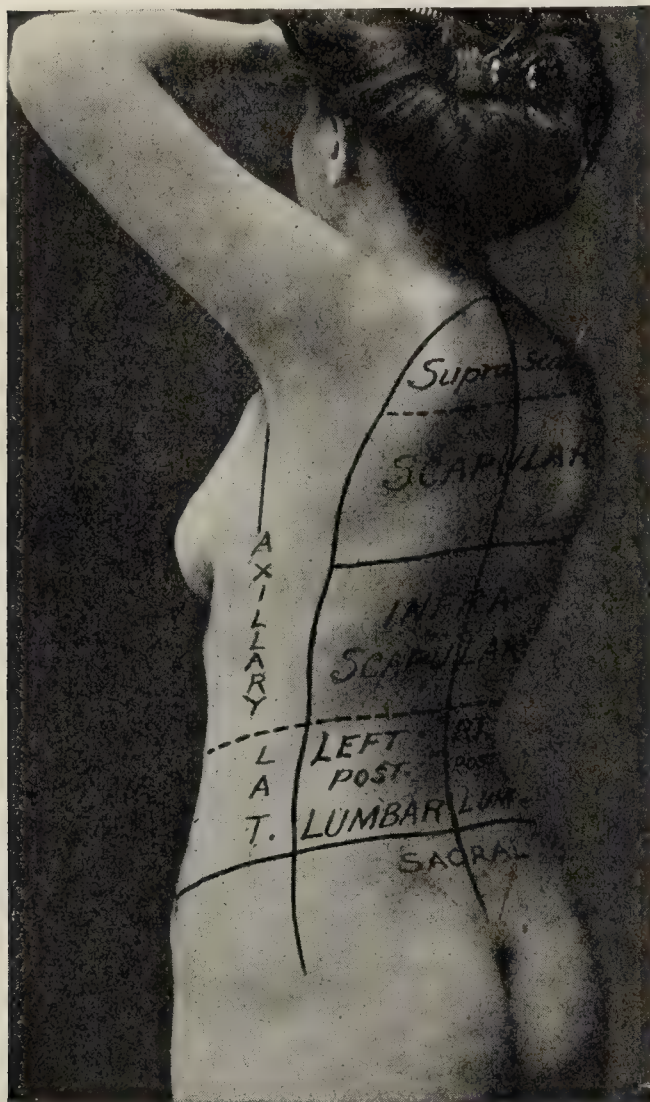 Supra Sca
SCAPULAR
AXILLARY
INFRA
SCAPULAR
LEFT
POST.
LUMBAR
RT.
POST.
LUM.
LAT.
SACRAL